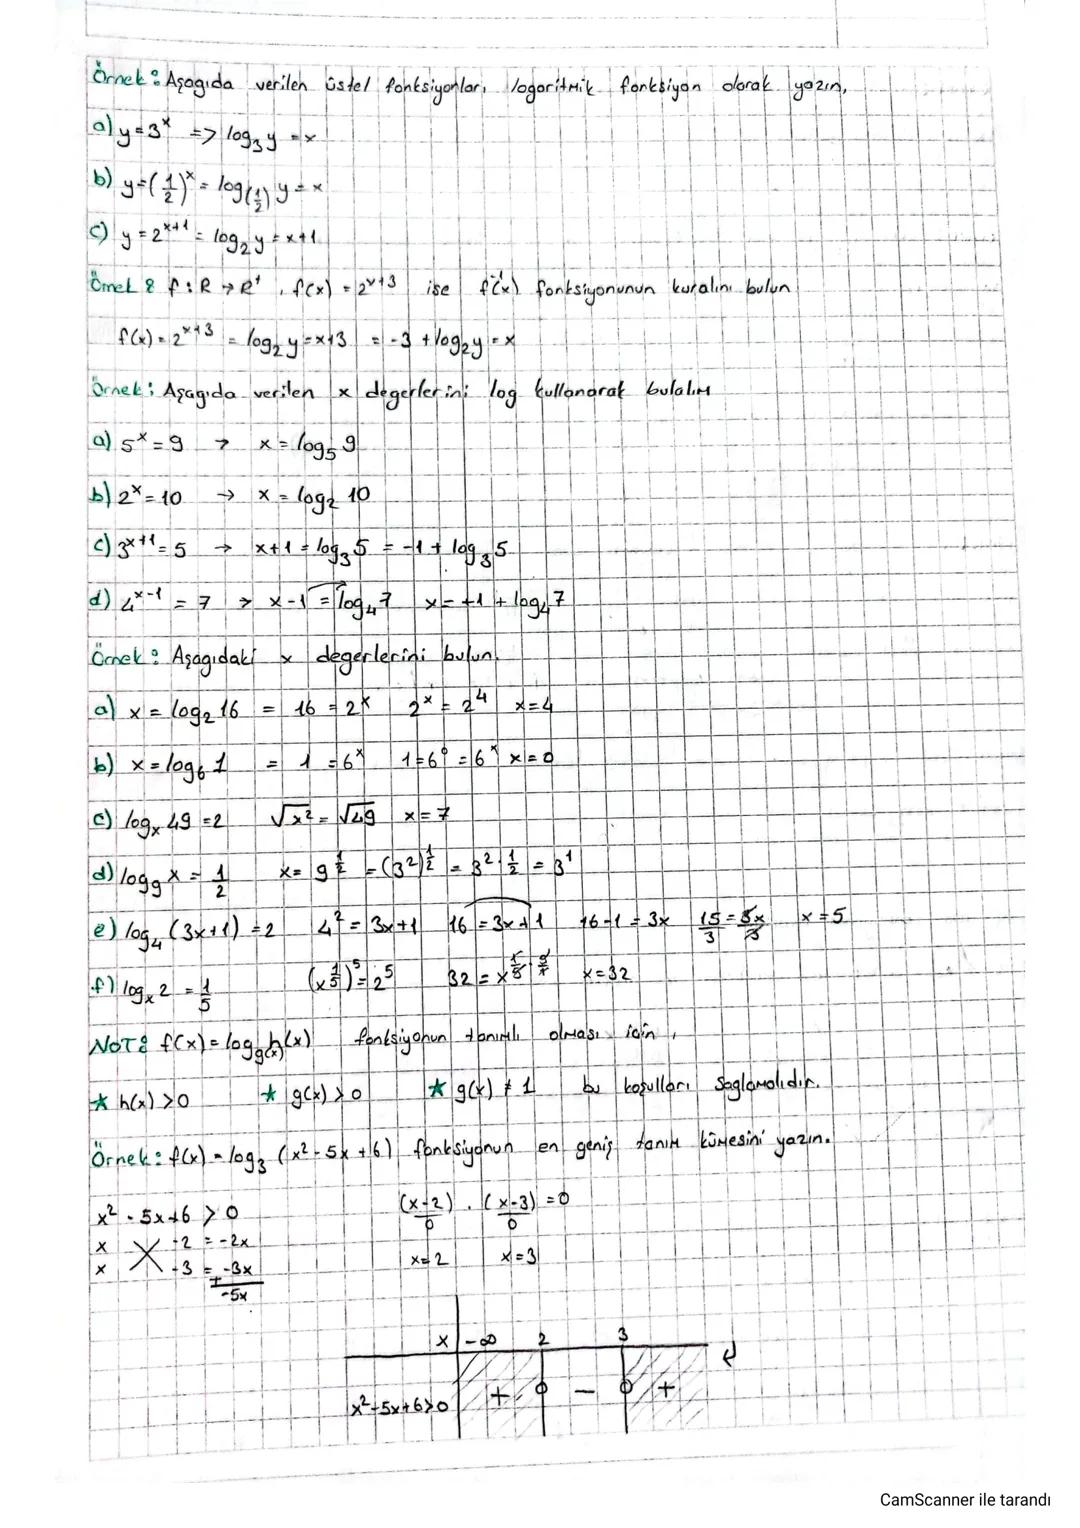 Örnek: Aşagıda verilen üstel fonksiyonları logaritmik fonksiyon olarak yazın,
a) y=3^x => log_3 y = x
b) y=(1/2)^x = log_(1/2) y = x
c) y=2^(x+1) = log_2 y = x+1
Örnek: f:R→R⁺, f(x)=2^(x+3) ise f⁻¹(x) fonksiyonunun kuralını bulun
f(x)=2^(x+3) = log_2 y = x+3 = -3 + log_2 y = x
Örnek: Aşagıda verilen x degerlerini log kullanarak bulalım
a) 5^x = 9 → x = log_5 9
b) 2^x = 10 → x = log_2 10
c) 3^(x+1) = 5 → x+1 = log_3 5 = -1 + log_3 5
d) 4^(x-1) = 7 → x-1 = log_4 7 x = +1 + log_4 7
Örnek: Aşagıdaki x degerlerini bulun.
a) x = log_2 16 = 16 = 2^x 2^x = 2^4 x=4
b) x = log_6 1 = 1 = 6^x 1=6^0 = 6^x x=0
c) log_x 49 = 2 √x² = √49 x=7
d) log_9 x = 1/2 x = 9^(1/2) = (3²)^(1/2) = 3^(2·1/2) = 3^1
e) log_4 (3x+1) = 2 4² = 3x+1 16 = 3x+1 16-1 = 3x 15/3 = 3x/3 x=5
f) log_x 2 = 1/5 (x^(1/5))^5 = 2^5 32 = x^(1/5 · 5/1) x=32
NOT: f(x) = log_g(x) h(x) fonksiyonun tanımlı olması için,
★ h(x) > 0 ★ g(x) > 0 ★ g(x) ≠ 1 bu koşulları Saglamalıdır.
Örnek: f(x) = log_3 (x² - 5x + 6) fonksiyonun en geniş tanım kümesini yazın.
x² - 5x + 6 > 0 (x-2)/0 . (x-3)/0 = 0
x -2 = -2x
x -3 = -3x x=2 x=3
+ -5x
x -∞ 2 3
x²-5x+6>0 + - +
CamScanner ile tarandı